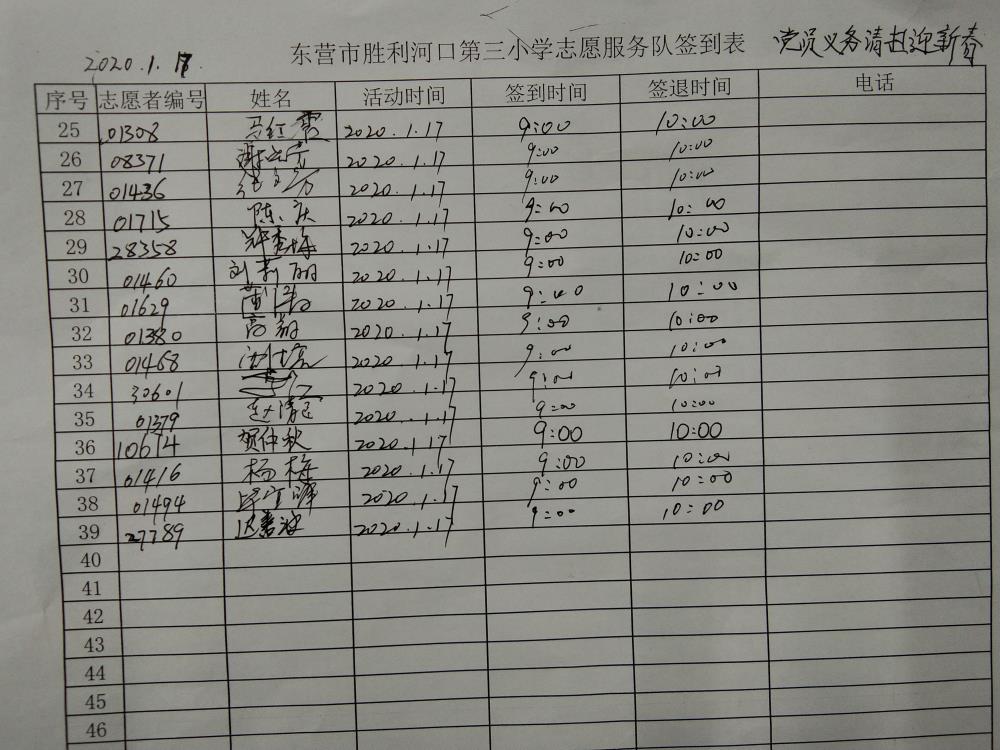 东营市胜利河口第三小学志愿服务队签到表 党员义务清扫迎新春
2020.1.17.
序号 志愿者编号 姓名 活动时间 签到时间 签退时间 电话
25 01308 马红霞 2020.1.17 9:00 10:00
26 08371 2020.1.17 9:00 10:00
27 01436 2020.1.17 9:00 10:00
28 01715 陈庆 2020.1.17 9:00 10:00
29 28358 2020.1.17 9:00 10:00
30 01460 刘莉丽 2020.1.17 9:00 10:00
31 01629 2020.1.17 9:00 10:00
32 01380 高翔 2020.1.17 9:00 10:00
33 01468 2020.1.17 9:00 10:00
34 30601 2020.1.17 9:00 10:00
35 01379 2020.1.17 9:00 10:00
36 10614 贺仲秋 2020.1.17 9:00 10:00
37 01416 杨梅 2020.1.17 9:00 10:00
38 01494 2020.1.17 9:00 10:00
39 27789 2020.1.17 9:00 10:00
40
41
42
43
44
45
46